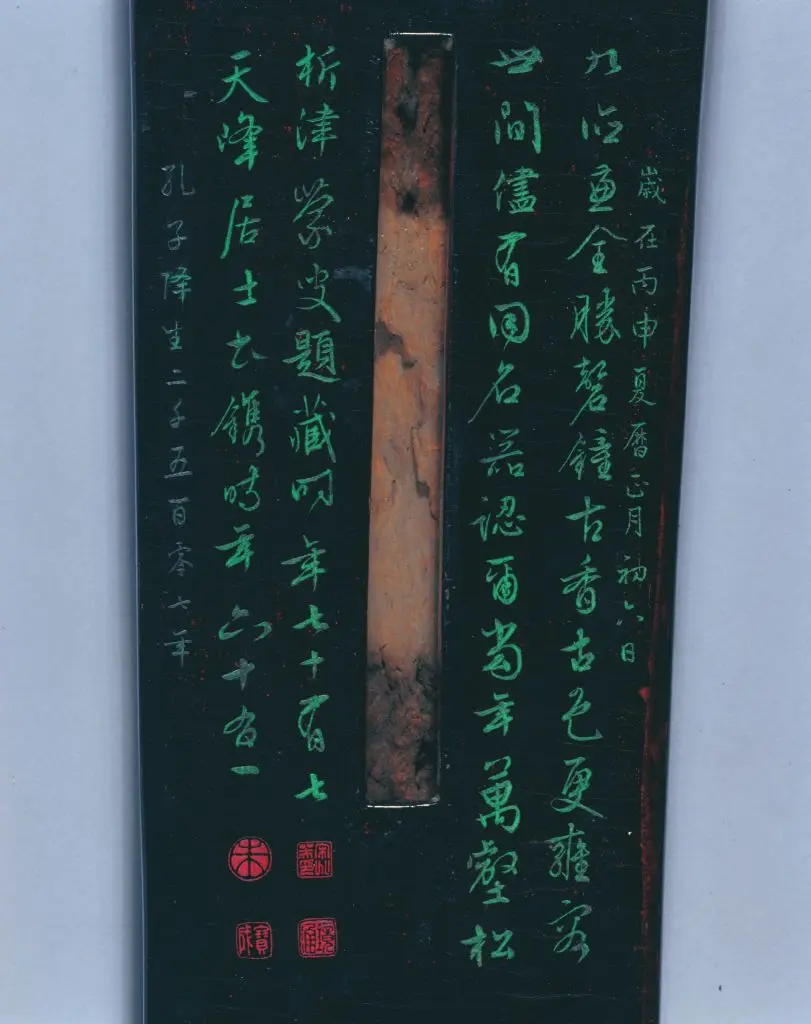 歲在丙申夏曆正月初六日
九德兼全勝磬鐘古香古色更雍容
世間儘有同名器認爾當年萬壑松
析津蒙叟題藏時年七十有七
天峰居士書鐫時年六十有一
朱
孔子降生二千五百零七年